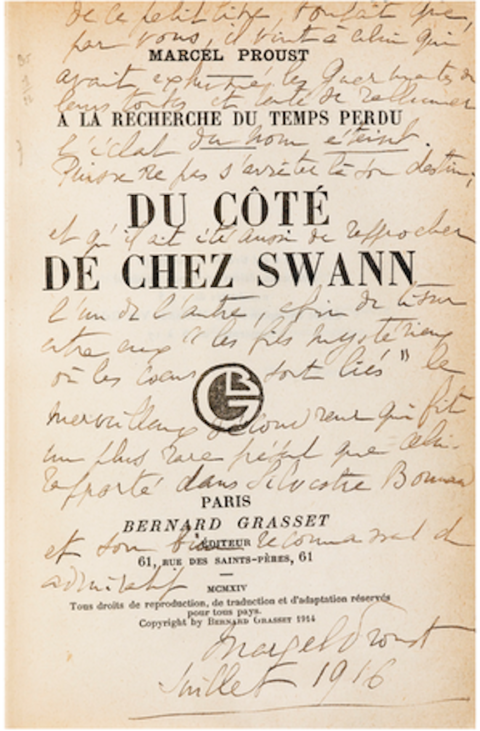 de ce petit
par vous, il vint à celui qui
MARCEL PROUST
avait exhumé les Guermantes de
leurs et tenté de rallumer
A LA RECHERCHE DU TEMPS PERDU
l'éclat du nom éteint.
Puisse ne pas s'arrêter là son destin,
DU CÔTÉ
et qu'il ait été aussi de rapprocher
DE CHEZ SWANN
l'un de l'autre, afin de tisser
entre eux "les fils mystérieux
où les coeurs sont liés" le
merveilleux qui fit
un plus rare présent que celui
rapporté dans Silvestre Bonnard
PARIS
BERNARD GRASSET
ÉDITEUR
et son bien reconnaissant et
61, RUE DES SAINTS-PÈRES, 61
admiratif
MCMXIV
Tous droits de reproduction, de traduction et d'adaptation réservés
pour tous pays.
Copyright by BERNARD GRASSET 1914
Marcel Proust
Juillet 1916